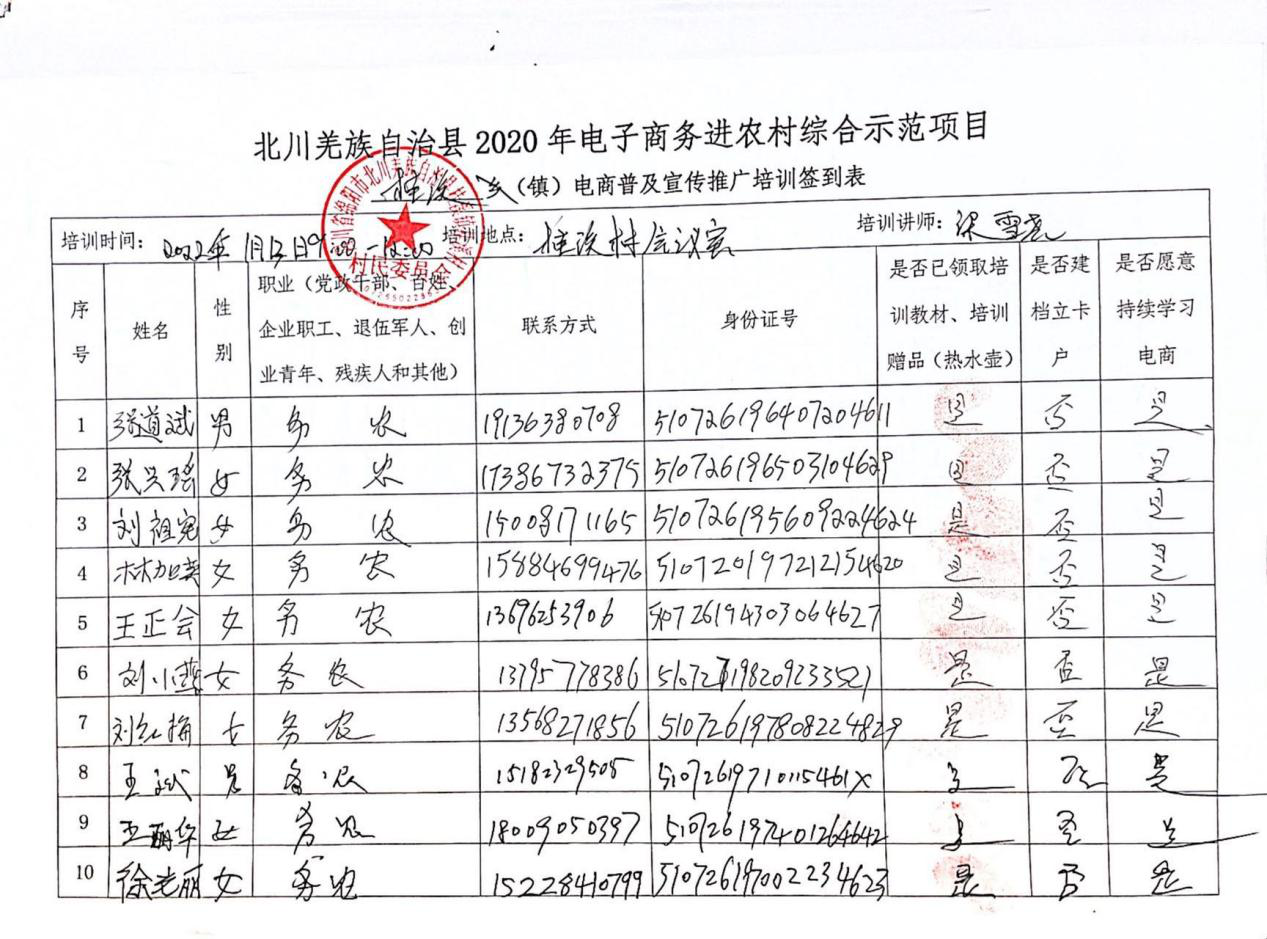 北川羌族自治县2020年电子商务进农村综合示范项目
乡(镇)电商普及宣传推广培训签到表
培训时间: 2022年1月12日9:00-12:00 培训地点: 村会议室 培训讲师: 梁雪尧
村民委员会
序号 姓名 性别 职业(党政干部、百姓、企业职工、退伍军人、创业青年、残疾人和其他) 联系方式 身份证号 是否已领取培训教材、培训赠品(热水壶) 是否建档立卡户 是否愿意持续学习电商
1 张道斌 男 务农 19136380708 510726196407204611 是 否 是
2 张兴瑶 女 务农 17386732375 510726196503104629 是 否 是
3 刘祖宪 女 务农 15008171165 510726195609224624 是 否 是
4 林加英 女 务农 15884699476 510720197212154620 是 否 是
5 王正会 女 务农 13696253906 510726194303064627 是 否 是
6 刘小燕 女 务农 13795778386 是 否 是
7 刘红梅 女 务农 13568271856 510726197808224829 是 否 是
8 王斌 男 务农 15182329505 51072619710115461X 是 否 是
9 王丽华 女 务农 18009050397 510726197401264642 是 否 是
10 徐 丽 女 务农 15228410799 510726197002234623 是 否 是